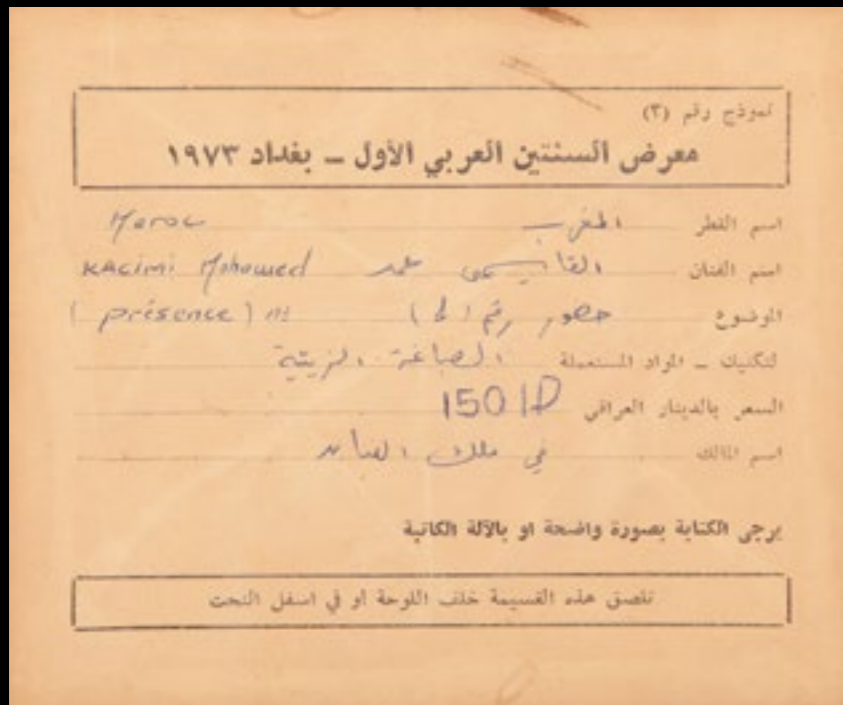 نموذج رقم (٣)
معرض السنتين العربي الأول ـ بغداد ١٩٧٣
اسم القطر المغرب Maroc
اسم الفنان القاسيمي محمد KACIMI Mohamed
الموضوع حضور رقم (présence)
لتكنيك ـ المواد المستعملة الصباغة الزيتية
السعر بالدينار العراقي 150 ID
اسم المالك في ملك الفنان
يرجى الكتابة بصورة واضحة او بالآلة الكاتبة
تلصق هذه القسيمة خلف اللوحة او في اسفل النحت